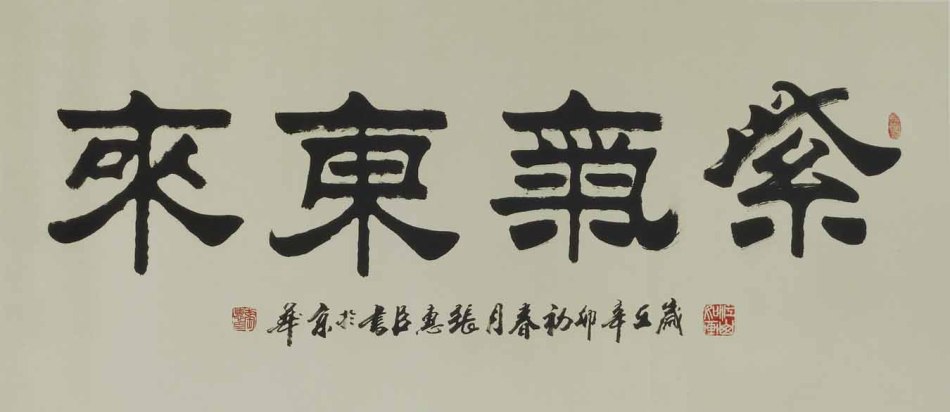 紫氣東來
歲在辛卯初春月張惠臣書於京華